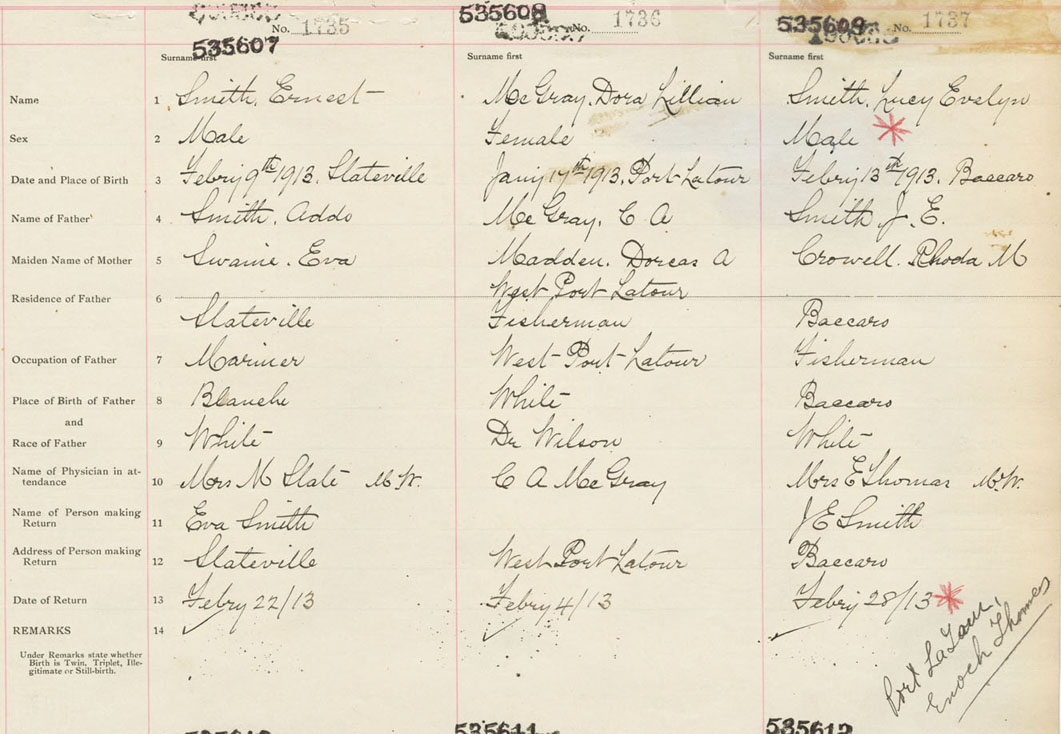 No. 1735
535608
No. 1736
535609
No. 1737
535607
Surname first
Surname first
Surname first
Name 1 Smith, Ernest
McGray, Dora Lillian
Smith, Lucy Evelyn
Sex 2 Male
Female
Male *
Date and Place of Birth 3 Febry 9th 1913. Slateville
Jany 17th 1913. Port Latour
Febry 13th 1913. Baccaro
Name of Father 4 Smith, Addo
McGray, C A
Smith J. E.
Maiden Name of Mother 5 Swaine. Eva
Madden. Dorcas A
Crowell. Rhoda M
Residence of Father 6 Slateville
West Port Latour
Fisherman
Baccaro
Occupation of Father 7 Mariner
West Port Latour
Fisherman
Place of Birth of Father 8 Blanche
White
Baccaro
and
Race of Father 9 White
Dr Wilson
White
Name of Physician in at-
tendance 10 Mrs M Slate M.W.
C A McGray
Mrs E Thomas M.W.
Name of Person making
Return 11 Eva Smith
J E Smith
Address of Person making
Return 12 Slateville
West Port Latour
Baccaro
Date of Return 13 Febry 22/13
Febry 4/13
Febry 28/13 *
REMARKS 14
Under Remarks state whether
Birth is Twin, Triplet, Ille-
gitimate or Still-birth.
Port LaTour,
Enoch Thomas
535611
535612